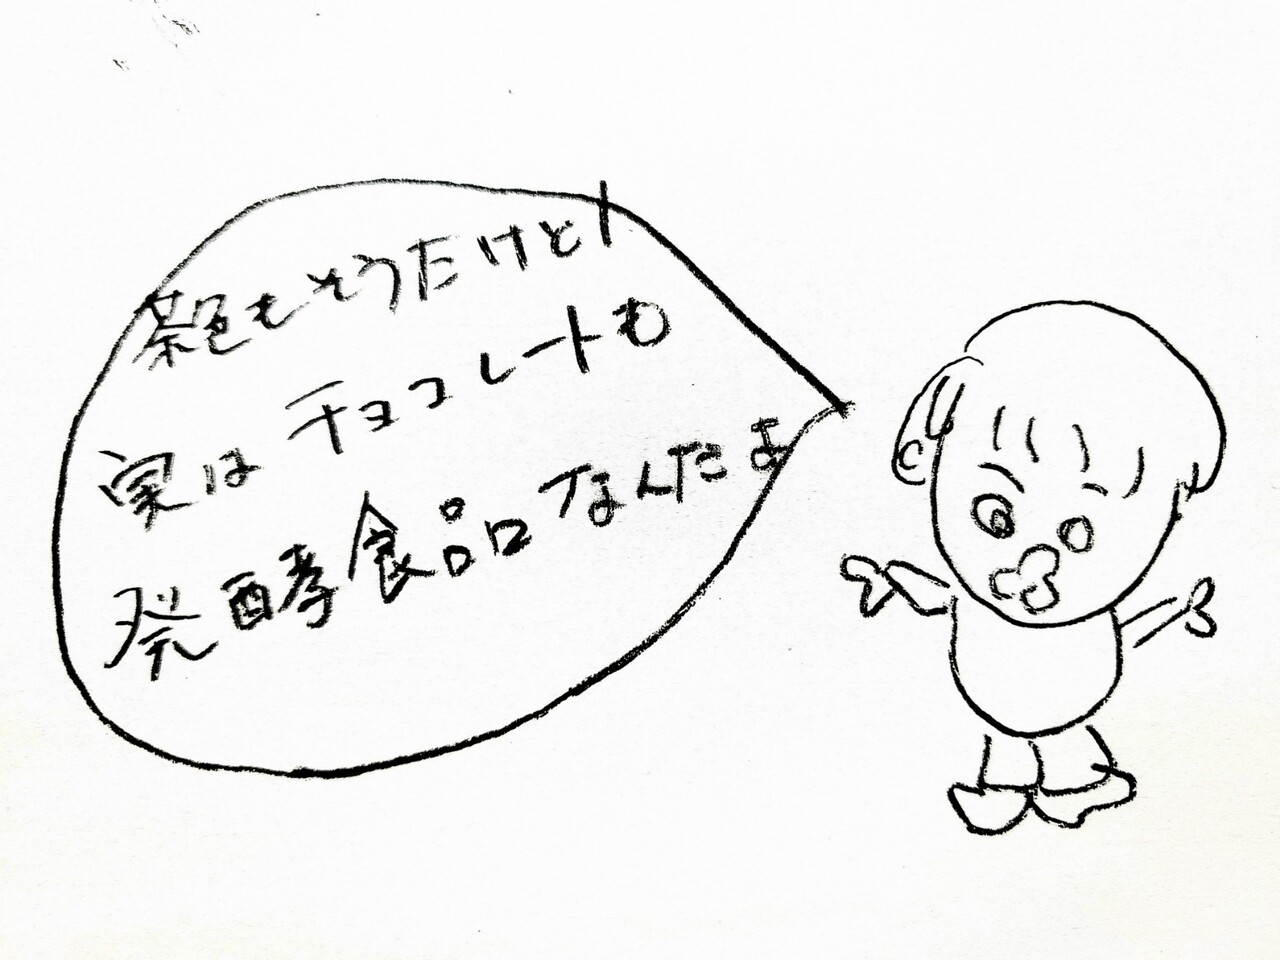 茶色もそうだけど
実はチョコレートも
発酵食品なんだよ